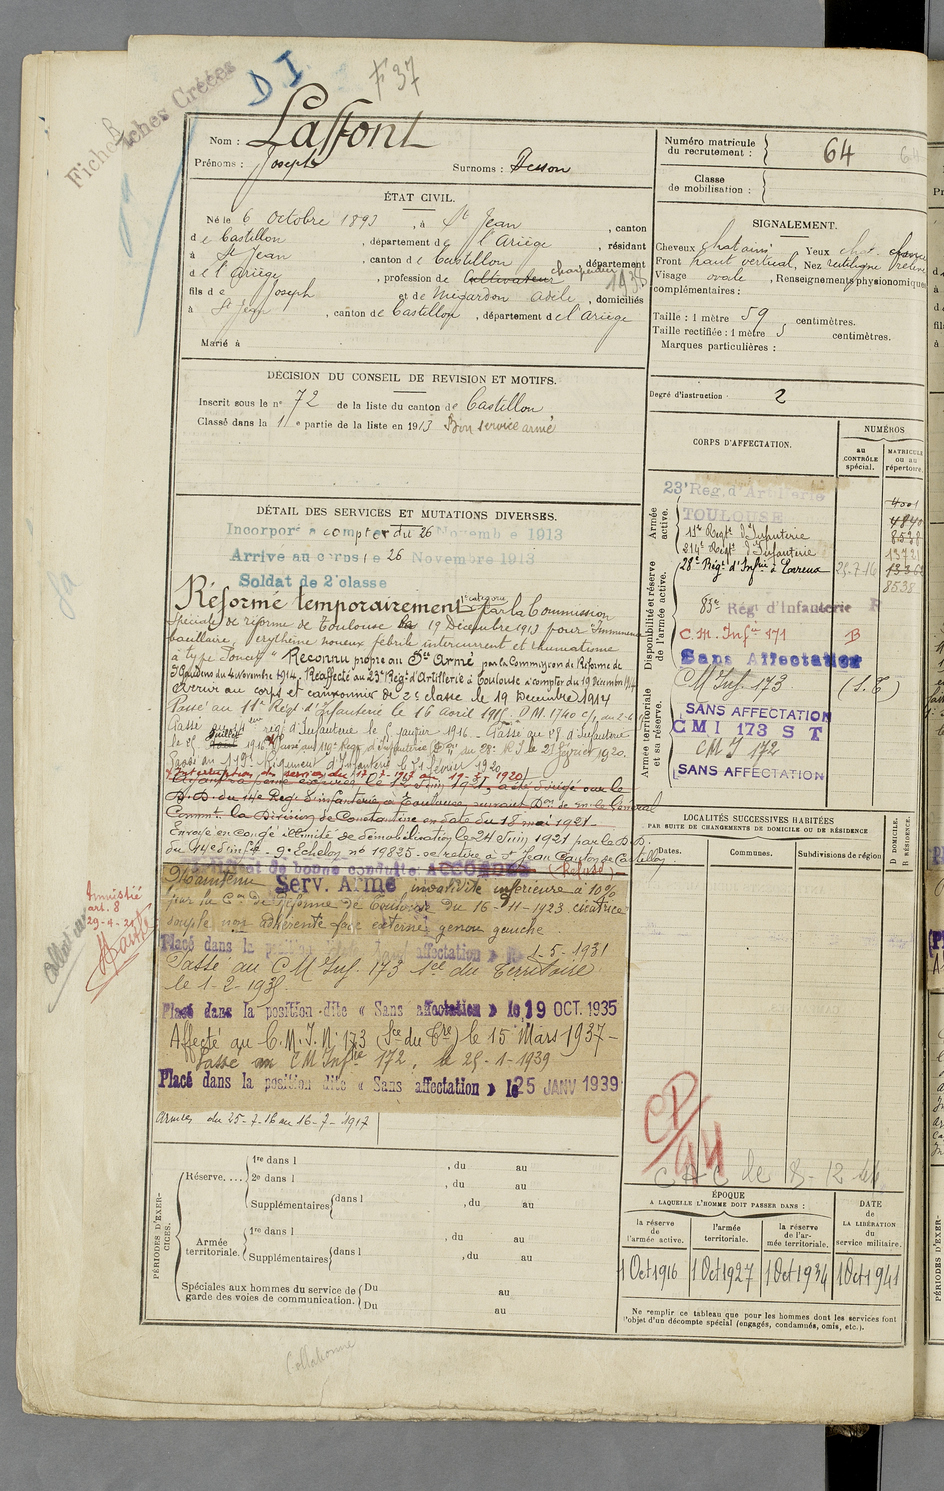 Fiches Créées
D I
F 37
Nom : Laffont
Prénoms : Joseph
Surnoms : Desson
Numéro matricule du recrutement : 64
Classe de mobilisation :
ÉTAT CIVIL.
Né le 6 Octobre 1893, à St Jean, canton
de Castillon, département de l'Ariège, résidant
à St Jean, canton de Castillon, département
de l'Ariège, profession de Cultivateur charpentier 1938
fils de Joseph et de Adèle, domiciliés
à St Jean, canton de Castillon, département de l'Ariège
Marié à
SIGNALEMENT.
Cheveux chatains Yeux chat.
Front haut vertical, Nez rectiligne
Visage ovale, Renseignements physionomiques
complémentaires :
Taille : 1 mètre 59 centimètres.
Taille rectifiée : 1 mètre 5 centimètres.
Marques particulières :
DÉCISION DU CONSEIL DE REVISION ET MOTIFS.
Inscrit sous le n° 72 de la liste du canton de Castillon
Classé dans la 1re partie de la liste en 1913 Bon service armé
Degré d'instruction : 2
DÉTAIL DES SERVICES ET MUTATIONS DIVERSES.
Incorporé à compter du 26 Novembre 1913
Arrivé au corps le 26 Novembre 1913
Soldat de 2e classe
Réformé temporairement 1e catégorie par la Commission
Spéciale de réforme de Toulouse le 19 Décembre 1913 pour "Immunence
bacillaire, erythème noueux fébrile intercurrent et rhumatisme
à type Poncet" Reconnu propre au Sce Armé par la Commission de Réforme de
St Gaudens du 4 novembre 1914. Réaffecté au 23e Régt d'Artillerie à Toulouse à compter du 19 Décembre 1914
Arrivé au corps et canonnier de 2e classe le 19 Décembre 1914
Passé au 11e Régt d'Infanterie le 16 avril 1915. D.M. 1740
Passé au 214eme régt d'Infanterie le 5 janvier 1916. Passé au 28e d'Infanterie
le 25 Juillet 1916. Passé au 119e Régt d'Infanterie au 28e R.I. le 25 février 1920.
Passé au 119e Régiment d'Infanterie le 21 Février 1920
Interruption de service du 17-7-1917 au 19-3-1920
le 12 Juin 1921, a été dirigé sur le
D.D. du 11e Régt d'Infanterie à Toulouse, suivant Don de m. le Général
Commt la Division de Constantine en date du 18 mai 1921
Envoyé en congé illimité de démobilisation le 24 Juin 1921 par le D.D.
9e Echelon n° 19825. se retire à St Jean Canton de Castillon
Certificat de bonne conduite ACCORDÉ (Refusé)
Maintenu Serv. Armé invalidité inférieure à 10%
par la Con de Réforme de Toulouse du 16-11-1923 cicatrice
souple non adhérente face externe genou gauche
Placé dans la position dite « Sans affectation » le 1-5-1931
Passé au C M Inf. 173 Sce du Territoire
le 1-2-1935.
Placé dans la position dite « Sans affectation » le 19 OCT. 1935
Affecté au C.M.I. N° 173 (Sce du Tre) le 15 Mars 1937-
Passé au CM Infie 172, le 25-1-1939
Placé dans la position dite « Sans affectation » le 25 JANV 1939
Armées du 25-7-16 au 16-7-1917
Amnistié
art. 8
29-4-21
CORPS D'AFFECTATION.
NUMÉROS
au CONTRÔLE spécial.
MATRICULE ou au répertoire.
Armée active.
23e Rég. d'Artillerie
TOULOUSE
11e Régt d'Infanterie
214e Régt d'Infanterie
28e Régt d'Infie à Evreux 25-7-16
4001
4840
8538
13721
8538
Disponibilité et réserve de l'armée active.
83e Rég. d'Infanterie R
C.M. Infie 171 B
Sans Affectation
Armée territoriale et sa réserve.
CM Inf. 173 (S.T)
SANS AFFECTATION
CMI 173 S T
CM I 172
SANS AFFECTATION
LOCALITÉS SUCCESSIVES HABITÉES
PAR SUITE DE CHANGEMENTS DE DOMICILE OU DE RÉSIDENCE
Dates.
Communes.
Subdivisions de région
D DOMICILE.
R RÉSIDENCE.
CD/44
CAC de 8-12-44
PÉRIODES D'EXERCICES.
Réserve....
1re dans l , du au
2e dans l , du au
Supplémentaires dans l , du au
Armée territoriale.
1re dans l , du au
Supplémentaires dans l , du au
Spéciales aux hommes du service de garde des voies de communication.
Du au
Du au
ÉPOQUE
A LAQUELLE L'HOMME DOIT PASSER DANS :
la réserve de l'armée active.
l'armée territoriale.
la réserve de l'armée territoriale.
DATE de LA LIBÉRATION du service militaire.
1 Oct 1916
1 Oct 1927
1 Oct 1934
1 Oct 1941
Ne remplir ce tableau que pour les hommes dont les services font
l'objet d'un décompte spécial (engagés, condamnés, omis, etc.).
Collationné